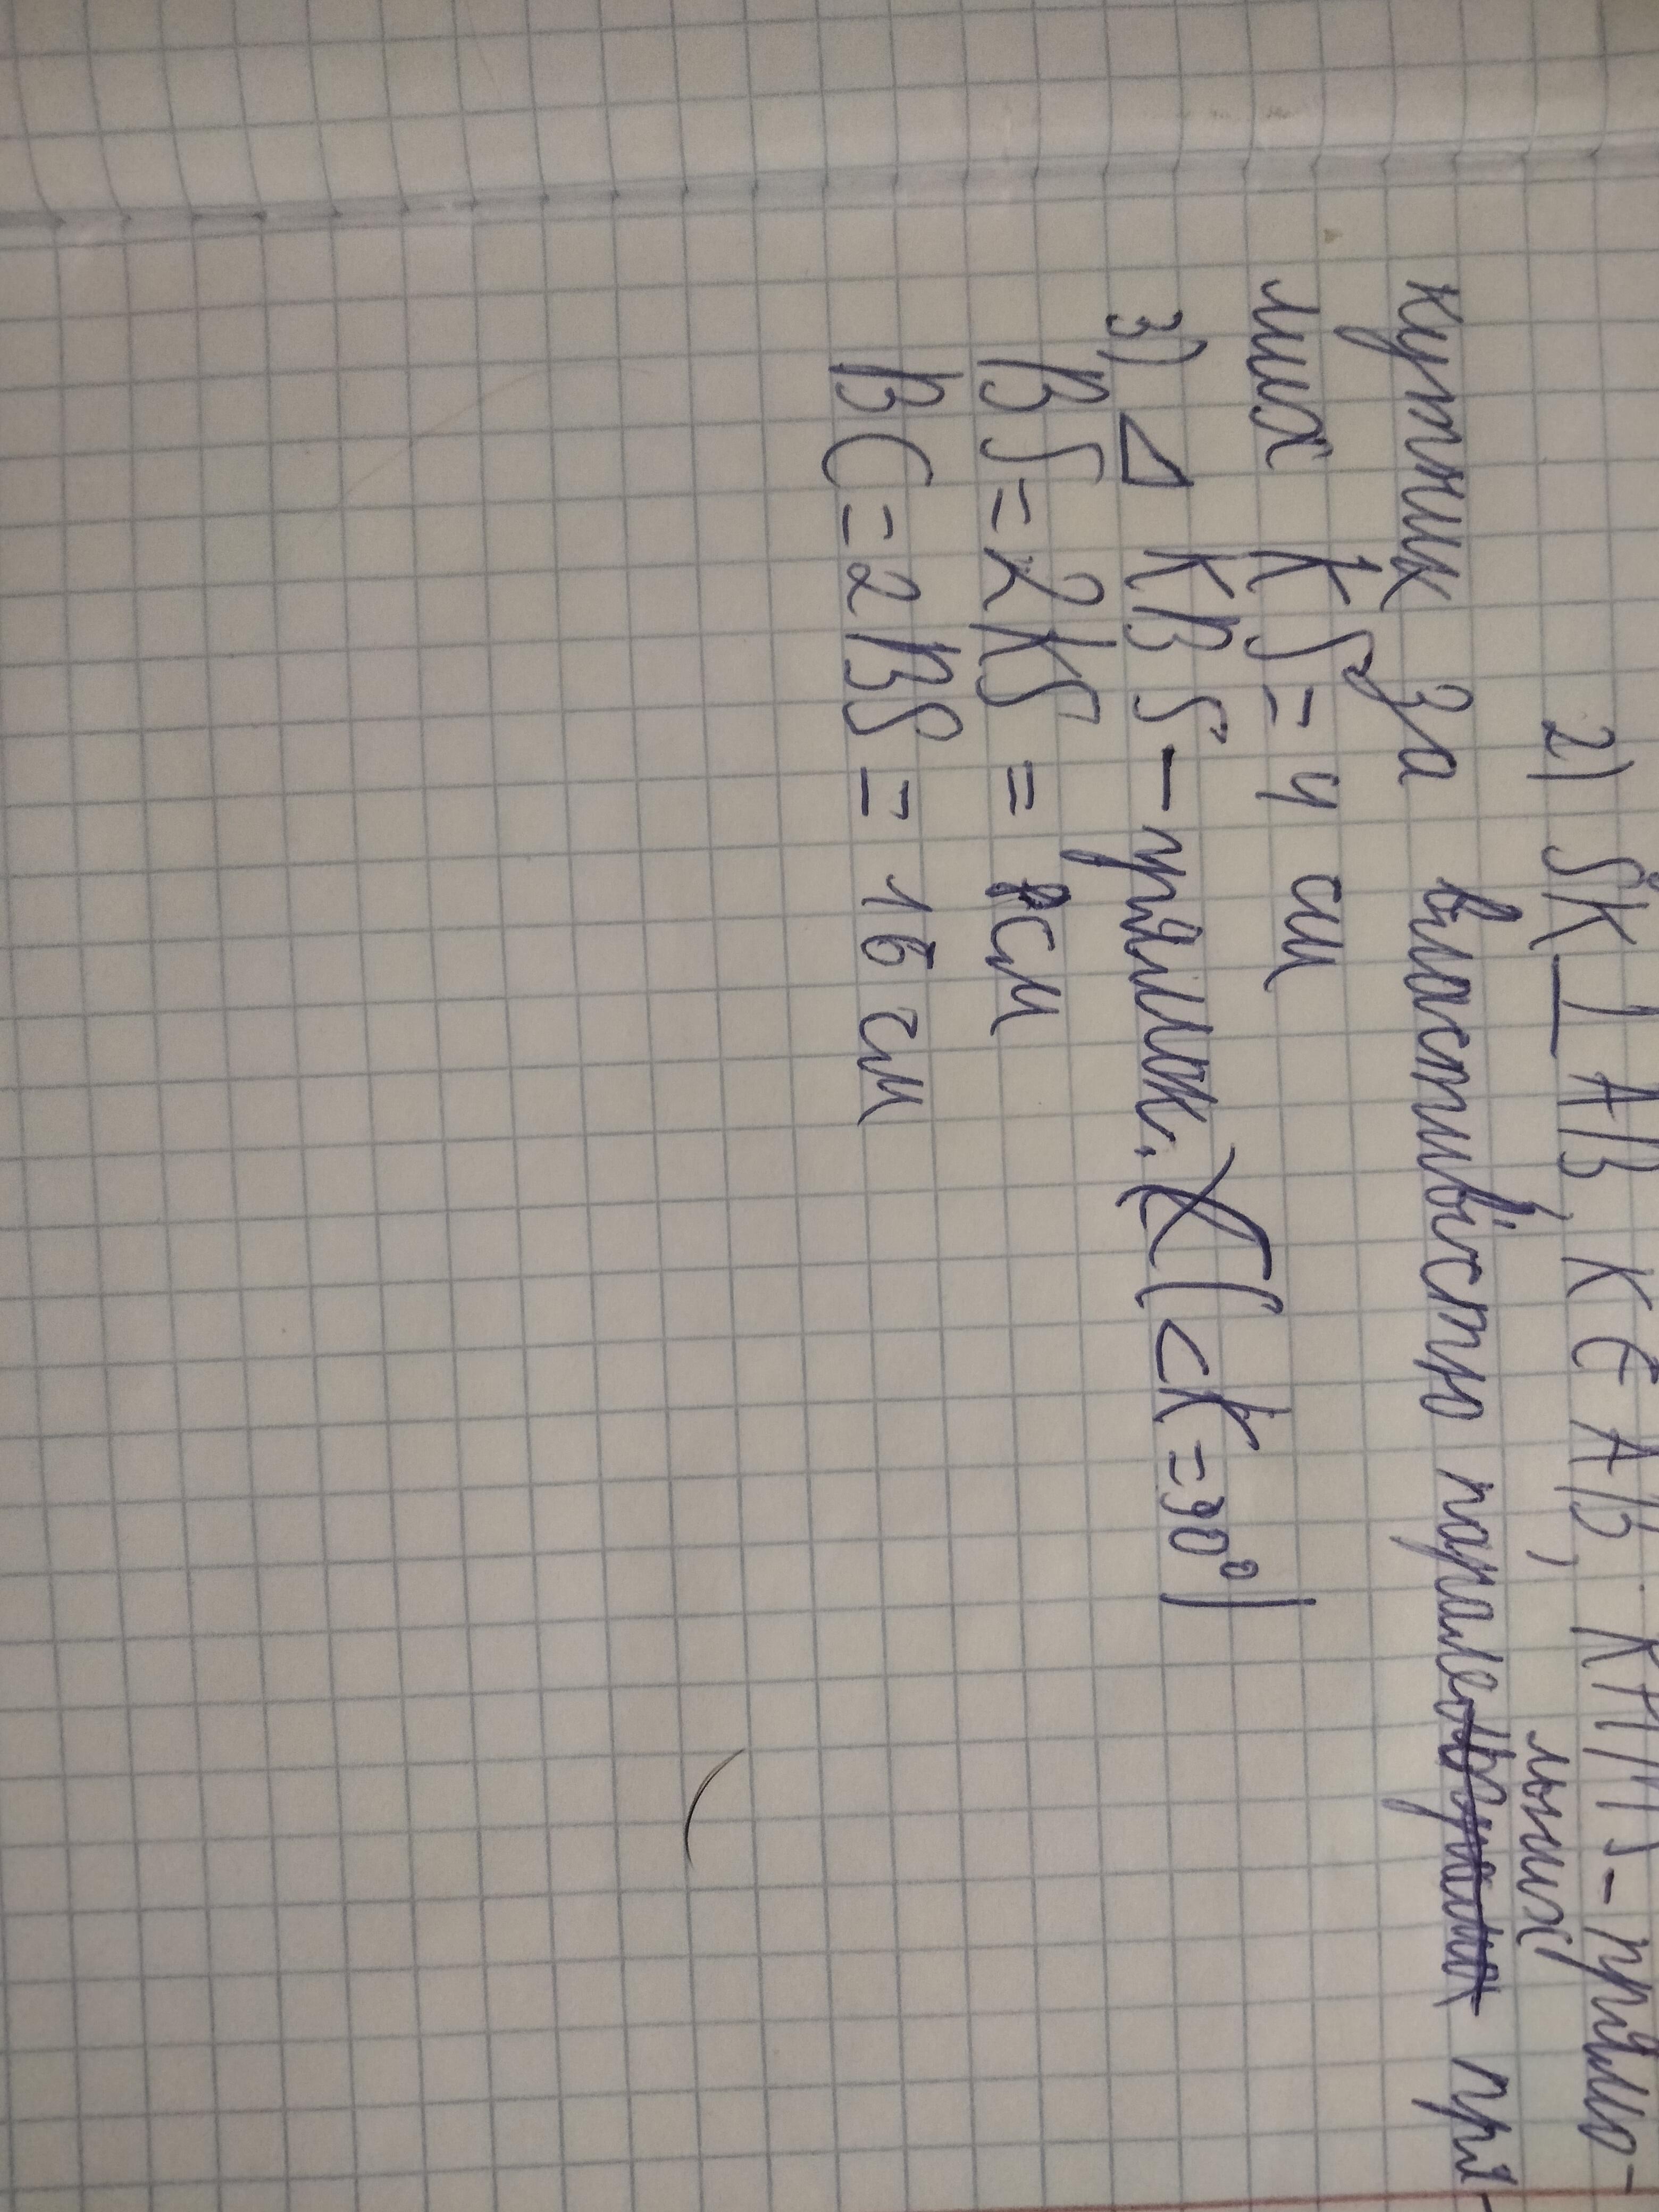 2) SK ⊥ AB, K ∈ AB, KMM - прямо-
льних
кутник За властивістю парале пря-
мих KS = 4 см
3) △ KBS - прямок. (<K = 90°)
BS = 2KS = 8см
BC = 2BS = 16 см